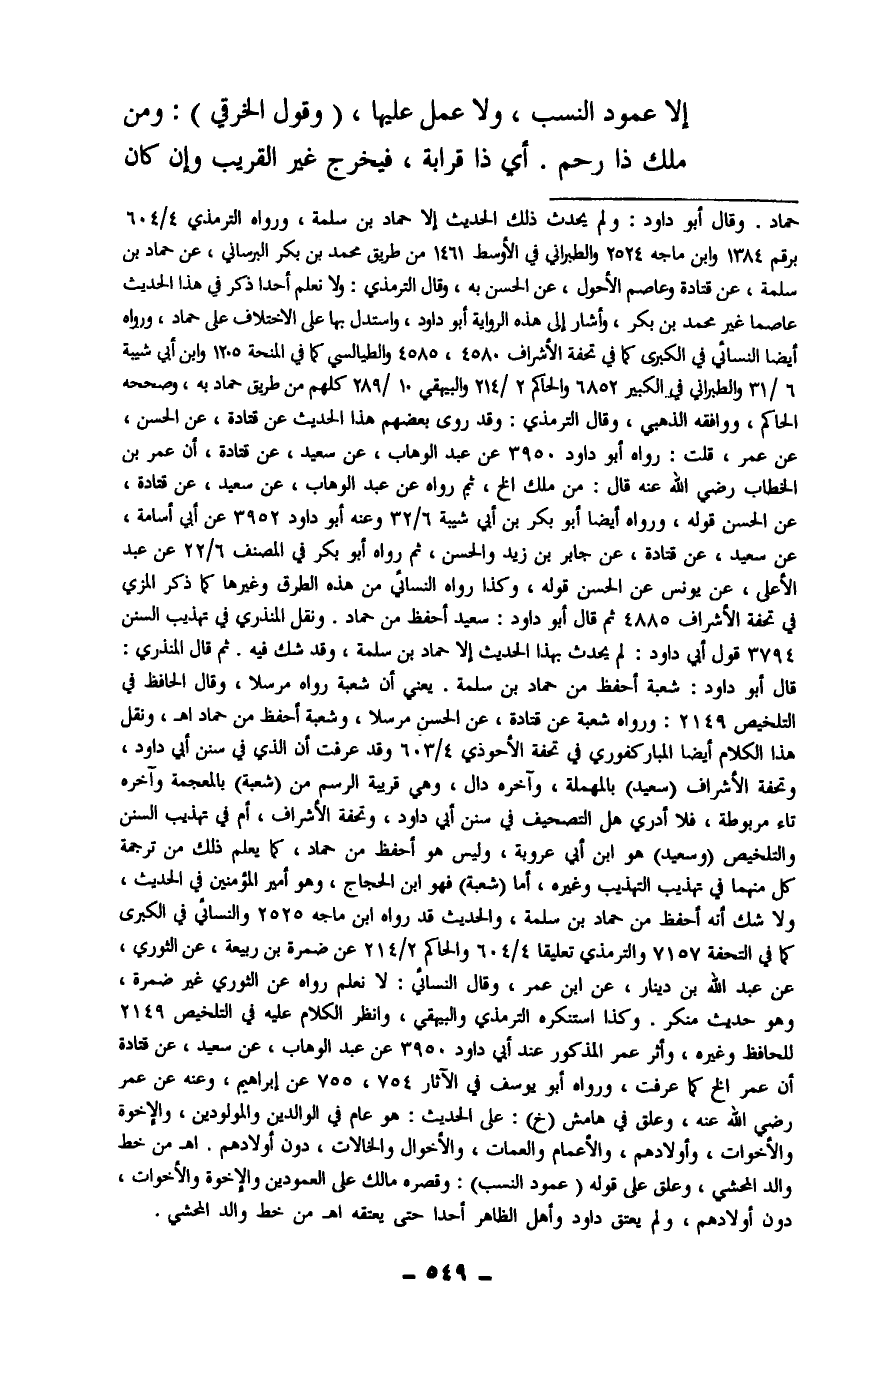 إلا عمود النسب ، ولا عمل عليها ، ( وقول الخرقي ) : ومن
ملك ذا رحم . أي ذا قرابة ، فيخرج غير القريب وإن كان
حماد . وقال أبو داود : ولم يحدث ذلك الحديث إلا حماد بن سلمة ، ورواه الترمذي ٦٠٤/٤
برقم ١٣٨٤ وابن ماجه ٢٥٢٤ والطبراني في الأوسط ١٤٦١ من طريق محمد بن بكر البرساني ، عن حماد بن
سلمة ، عن قتادة وعاصم الأحول ، عن الحسن به ، وقال الترمذي : ولا نعلم أحدا ذكر في هذا الحديث
عاصما غير محمد بن بكر ، وأشار إلى هذه الرواية أبو داود ، واستدل بها على الاختلاف على حماد ، ورواه
أيضا النسائي في الكبرى كما في تحفة الأشراف ٤٥٨٠ ، ٤٥٨٥ والطيالسي كما في المنحة ١٢٠٥ وابن أبي شيبة
٦ /٣١ والطبراني في الكبير ٦٨٥٢ والحاكم ٢ /٢١٤ والبيهقي ١٠ /٢٨٩ كلهم من طريق حماد به ، وصححه
الحاكم ، ووافقه الذهبي ، وقال الترمذي : وقد روى بعضهم هذا الحديث عن قتادة ، عن الحسن ،
عن عمر ، قلت : رواه أبو داود ٣٩٥٠ عن عبد الوهاب ، عن سعيد ، عن قتادة ، أن عمر بن
الخطاب رضي الله عنه قال : من ملك الخ ، ثم رواه عن عبد الوهاب ، عن سعيد ، عن قتادة ،
عن الحسن قوله ، ورواه أيضا أبو بكر بن أبي شيبة ٣٢/٦ وعنه أبو داود ٣٩٥٢ عن أبي أسامة ،
عن سعيد ، عن قتادة ، عن جابر بن زيد والحسن ، ثم رواه أبو بكر في المصنف ٢٢/٦ عن عبد
الأعلى ، عن يونس عن الحسن قوله ، وكذا رواه النسائي من هذه الطرق وغيرها كما ذكر المزي
في تحفة الأشراف ٤٨٨٥ ثم قال أبو داود : سعيد أحفظ من حماد . ونقل المنذري في تهذيب السنن
٣٧٩٤ قول أبي داود : لم يحدث بهذا الحديث إلا حماد بن سلمة ، وقد شك فيه . ثم قال المنذري :
قال أبو داود : شعبة أحفظ من حماد بن سلمة . يعني أن شعبة رواه مرسلا ، وقال الحافظ في
التلخيص ٢١٤٩ : ورواه شعبة عن قتادة ، عن الحسن مرسلا ، وشعبة أحفظ من حماد اهـ ، ونقل
هذا الكلام أيضا المباركفوري في تحفة الأحوذي ٦٠٣/٤ وقد عرفت أن الذي في سنن أبي داود ،
وتحفة الأشراف (سعيد) بالمهملة ، وآخره دال ، وهي قريبة الرسم من (شعبة) بالمعجمة وآخره
تاء مربوطة ، فلا أدري هل التصحيف في سنن أبي داود ، وتحفة الأشراف ، أم في تهذيب السنن
والتلخيص (وسعيد) هو ابن أبي عروبة ، وليس هو أحفظ من حماد ، كما يعلم ذلك من ترجمة
كل منهما في تهذيب التهذيب وغيره ، أما (شعبة) فهو ابن الحجاج ، وهو أمير المؤمنين في الحديث ،
ولا شك أنه أحفظ من حماد بن سلمة ، والحديث قد رواه ابن ماجه ٢٥٢٥ والنسائي في الكبرى
كما في التحفة ٧١٥٧ والترمذي تعليقا ٦٠٤/٤ والحاكم ٢١٤/٢ عن ضمرة بن ربيعة ، عن الثوري ،
عن عبد الله بن دينار ، عن ابن عمر ، وقال النسائي : لا نعلم رواه عن الثوري غير ضمرة ،
وهو حديث منكر . وكذا استنكره الترمذي والبيهقي ، وانظر الكلام عليه في التلخيص ٢١٤٩
للحافظ وغيره ، وأثر عمر المذكور عند أبي داود ٣٩٥٠ عن عبد الوهاب ، عن سعيد ، عن قتادة
أن عمر الخ كما عرفت ، ورواه أبو يوسف في الآثار ٧٥٤ ، ٧٥٥ عن إبراهيم ، وعنه عن عمر
رضي الله عنه ، وعلق في هامش (خ) : على الحديث : هو عام في الوالدين والمولودين ، والإخوة
والأخوات ، وأولادهم ، والأعمام والعمات ، والأخوال والخالات ، دون أولادهم . اهـ من خط
والد المحشي ، وعلق على قوله ( عمود النسب) : وقصره مالك على العمودين والإخوة والأخوات ،
دون أولادهم ، ولم يعتق داود وأهل الظاهر أحدا حتى يعتقه اهـ من خط والد المحشي .
– ٥٤٩ –